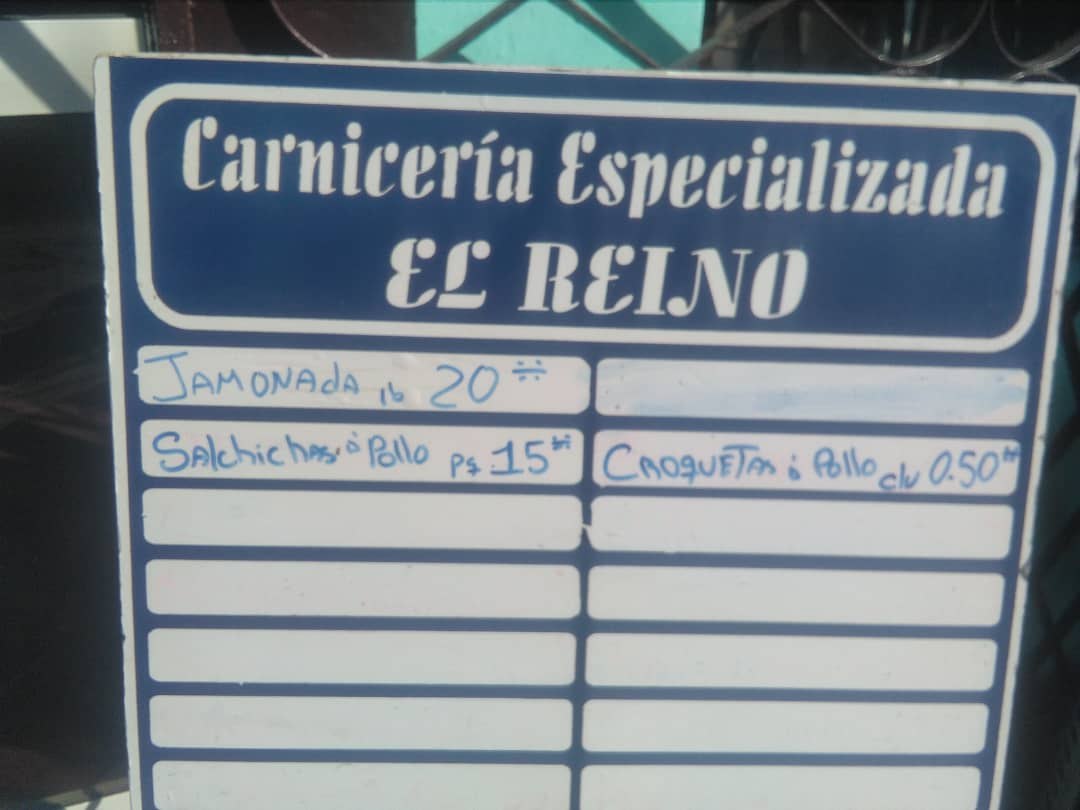 Carnicería Especializada
EL REINO
JAMONADA lb 20
Salchichas Pollo 15
CROQUETAS Pollo c/u 0.50